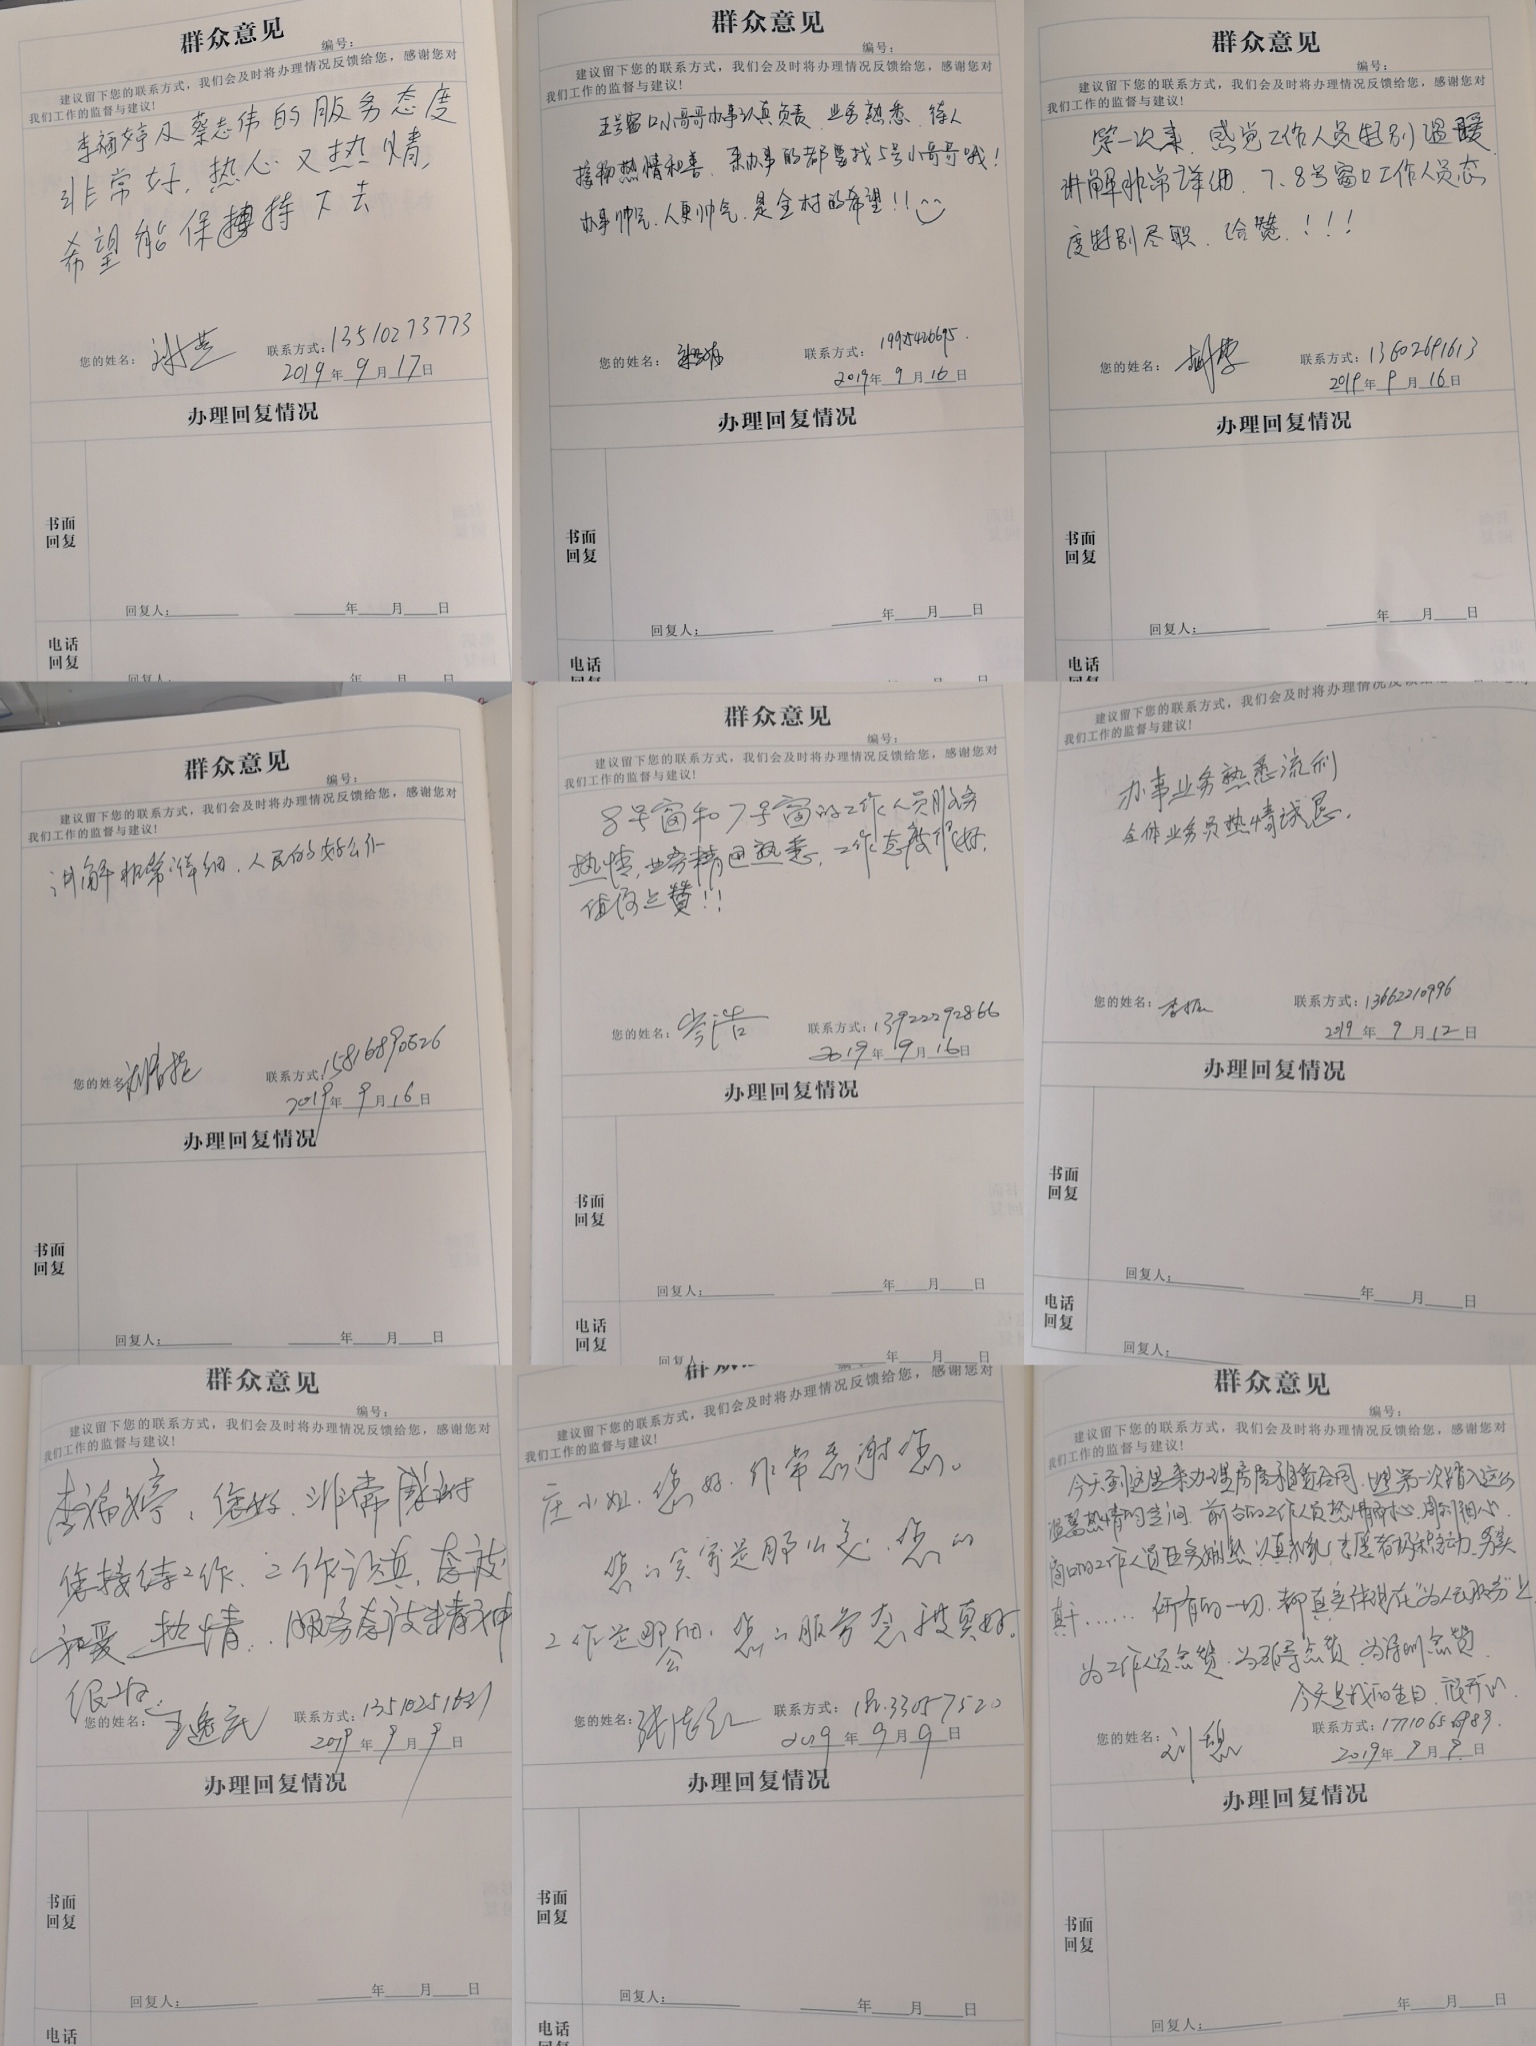 群众意见
编号：
建议留下您的联系方式，我们会及时将办理情况反馈给您，感谢您对
我们工作的监督与建议！
李福婷及蔡志伟的服务态度
非常好，热心又热情，
希望能保持下去
您的姓名：
联系方式：13510273773
2019年9月17日
办理回复情况
书面
回复
回复人：
年 月 日
电话
回复
群众意见
编号：
建议留下您的联系方式，我们会及时将办理情况反馈给您，感谢您对
我们工作的监督与建议！
5号窗口小哥哥办事认真负责、业务熟悉、待人
接物热情和善、来办事的都要找5号小哥哥哦！
办事帅气、人更帅气、是全村的希望！！
您的姓名：
联系方式：19925426695.
2019年9月16日
办理回复情况
书面
回复
回复人：
年 月 日
电话
回复
群众意见
编号：
建议留下您的联系方式，我们会及时将办理情况反馈给您，感谢您对
我们工作的监督与建议！
第一次来，感觉工作人员特别温暖
讲解非常详细、7、8号窗口工作人员态
度特别尽职、给赞！！！
您的姓名：
联系方式：13602691613
2019年9月16日
办理回复情况
书面
回复
回复人：
年 月 日
电话
回复
群众意见
编号：
建议留下您的联系方式，我们会及时将办理情况反馈给您，感谢您对
我们工作的监督与建议！
讲解非常详细、人民的好公仆
您的姓名
联系方式：15816890526
2019年9月16日
办理回复情况
书面
回复
回复人：
年 月 日
群众意见
编号：
建议留下您的联系方式，我们会及时将办理情况反馈给您，感谢您对
我们工作的监督与建议！
8号窗和7号窗的工作人员服务
热情，业务精通熟悉，工作态度很好，
值得点赞！！
您的姓名：岑浩
联系方式：13922292866
2019年9月16日
办理回复情况
书面
回复
回复人：
年 月 日
电话
回复
回复人：
年 月 日
建议留下您的联系方式，我们会及时将办理情况反馈给您，感谢您对
我们工作的监督与建议！
办事业务熟悉流利
全体业务员热情诚恳。
您的姓名：李振
联系方式：13662210996
2019年9月12日
办理回复情况
书面
回复
回复人：
年 月 日
电话
回复
回复人：
群众意见
编号：
建议留下您的联系方式，我们会及时将办理情况反馈给您，感谢您对
我们工作的监督与建议！
李福婷，您好，非常感谢
您接待工作、工作认真，态度
和爱 热情，服务态度精神
很好。
您的姓名：王逸民
联系方式：
2019年9月9日
办理回复情况
书面
回复
回复人：
年 月 日
电话
群众意见
编号：
建议留下您的联系方式，我们会及时将办理情况反馈给您，感谢您对
我们工作的监督与建议！
庄小姐，您好，非常感谢您。
您的笑容是那么美、您的
工作是那么细，您的服务态度真好。
您的姓名：
联系方式：
2019年9月9日
办理回复情况
书面
回复
回复人：
年 月 日
电话
回复
群众意见
编号：
建议留下您的联系方式，我们会及时将办理情况反馈给您，感谢您对
我们工作的监督与建议！
今天到这里来办理房屋租赁合同，也是第一次踏入这么
温馨热情的空间，前台的工作人员热情耐心、周到细心，
窗口的工作人员业务娴熟、认真，志愿者积极主动、务实
真干……所有的一切，都真实体现在“为人民服务”上
为工作人员点赞、为点赞、为深圳点赞
今天是我的生日，很开心
您的姓名：刘
联系方式：
2019年9月9日
办理回复情况
书面
回复
回复人：
年 月 日